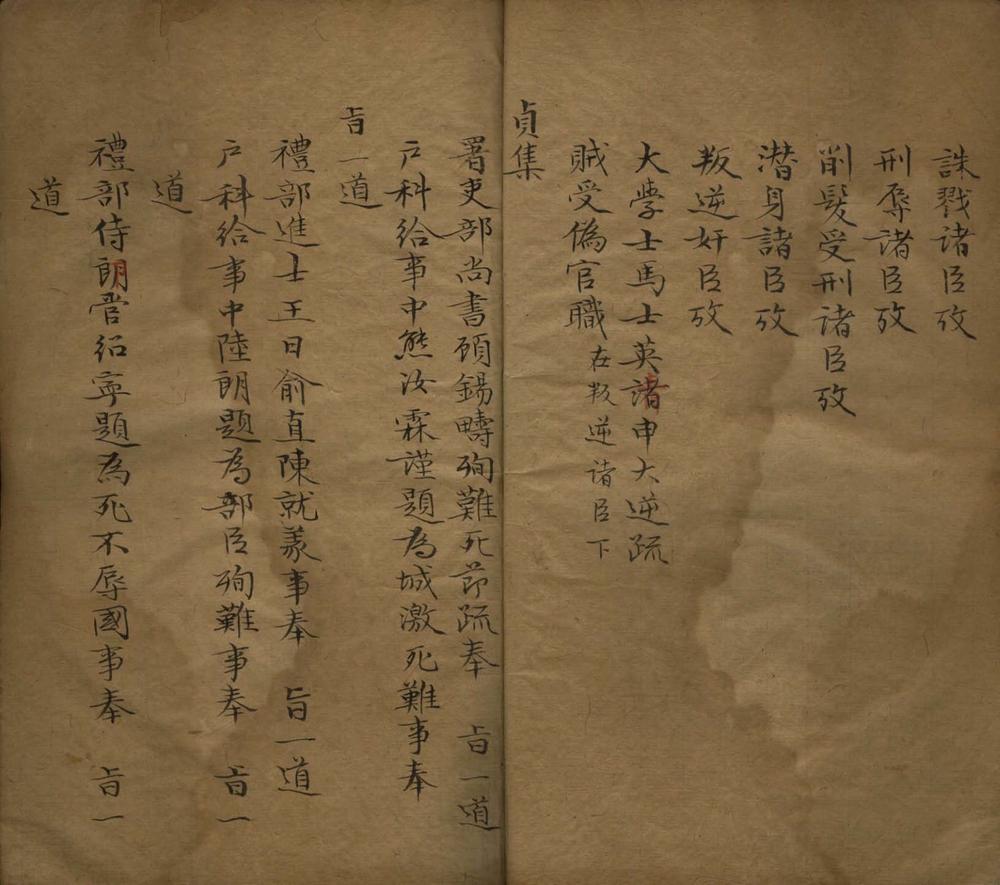 誅戮諸臣攷
刑辱諸臣攷
削髮受刑諸臣攷
潜身諸臣攷
叛逆奸臣攷
大學士馬士英諸申大逆疏
賊受偽官職 在叛逆諸臣下
貞集
署吏部尚書顧錫疇殉難死節疏奉 旨一道
戶科給事中熊汝霖謹題為城激死難事奉
旨一道
禮部進士王曰俞直陳就義事奉 旨一道
戶科給事中陸朗題為部臣殉難事奉 旨一
道
禮部侍郎管紹寧題為死不辱國事奉 旨一
道